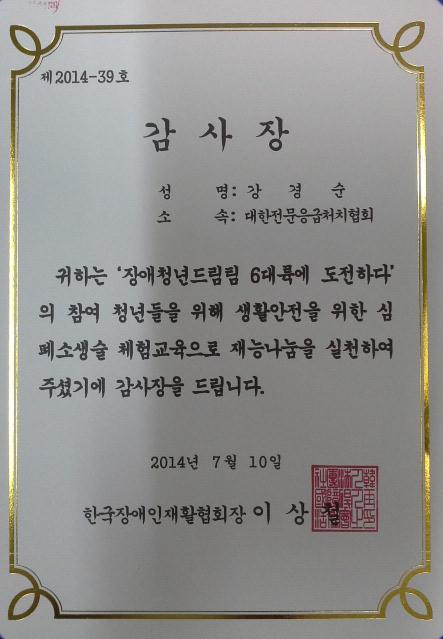 제2014-39호
감 사 장
성 명: 강 경 순
소 속: 대한전문응급처치협회
귀하는 '장애청년드림팀 6대륙에 도전하다'
의 참여 청년들을 위해 생활안전을 위한 심
폐소생술 체험교육으로 재능나눔을 실천하여
주셨기에 감사장을 드립니다.
2014년 7월 10일
한국장애인재활협회장 이 상 철